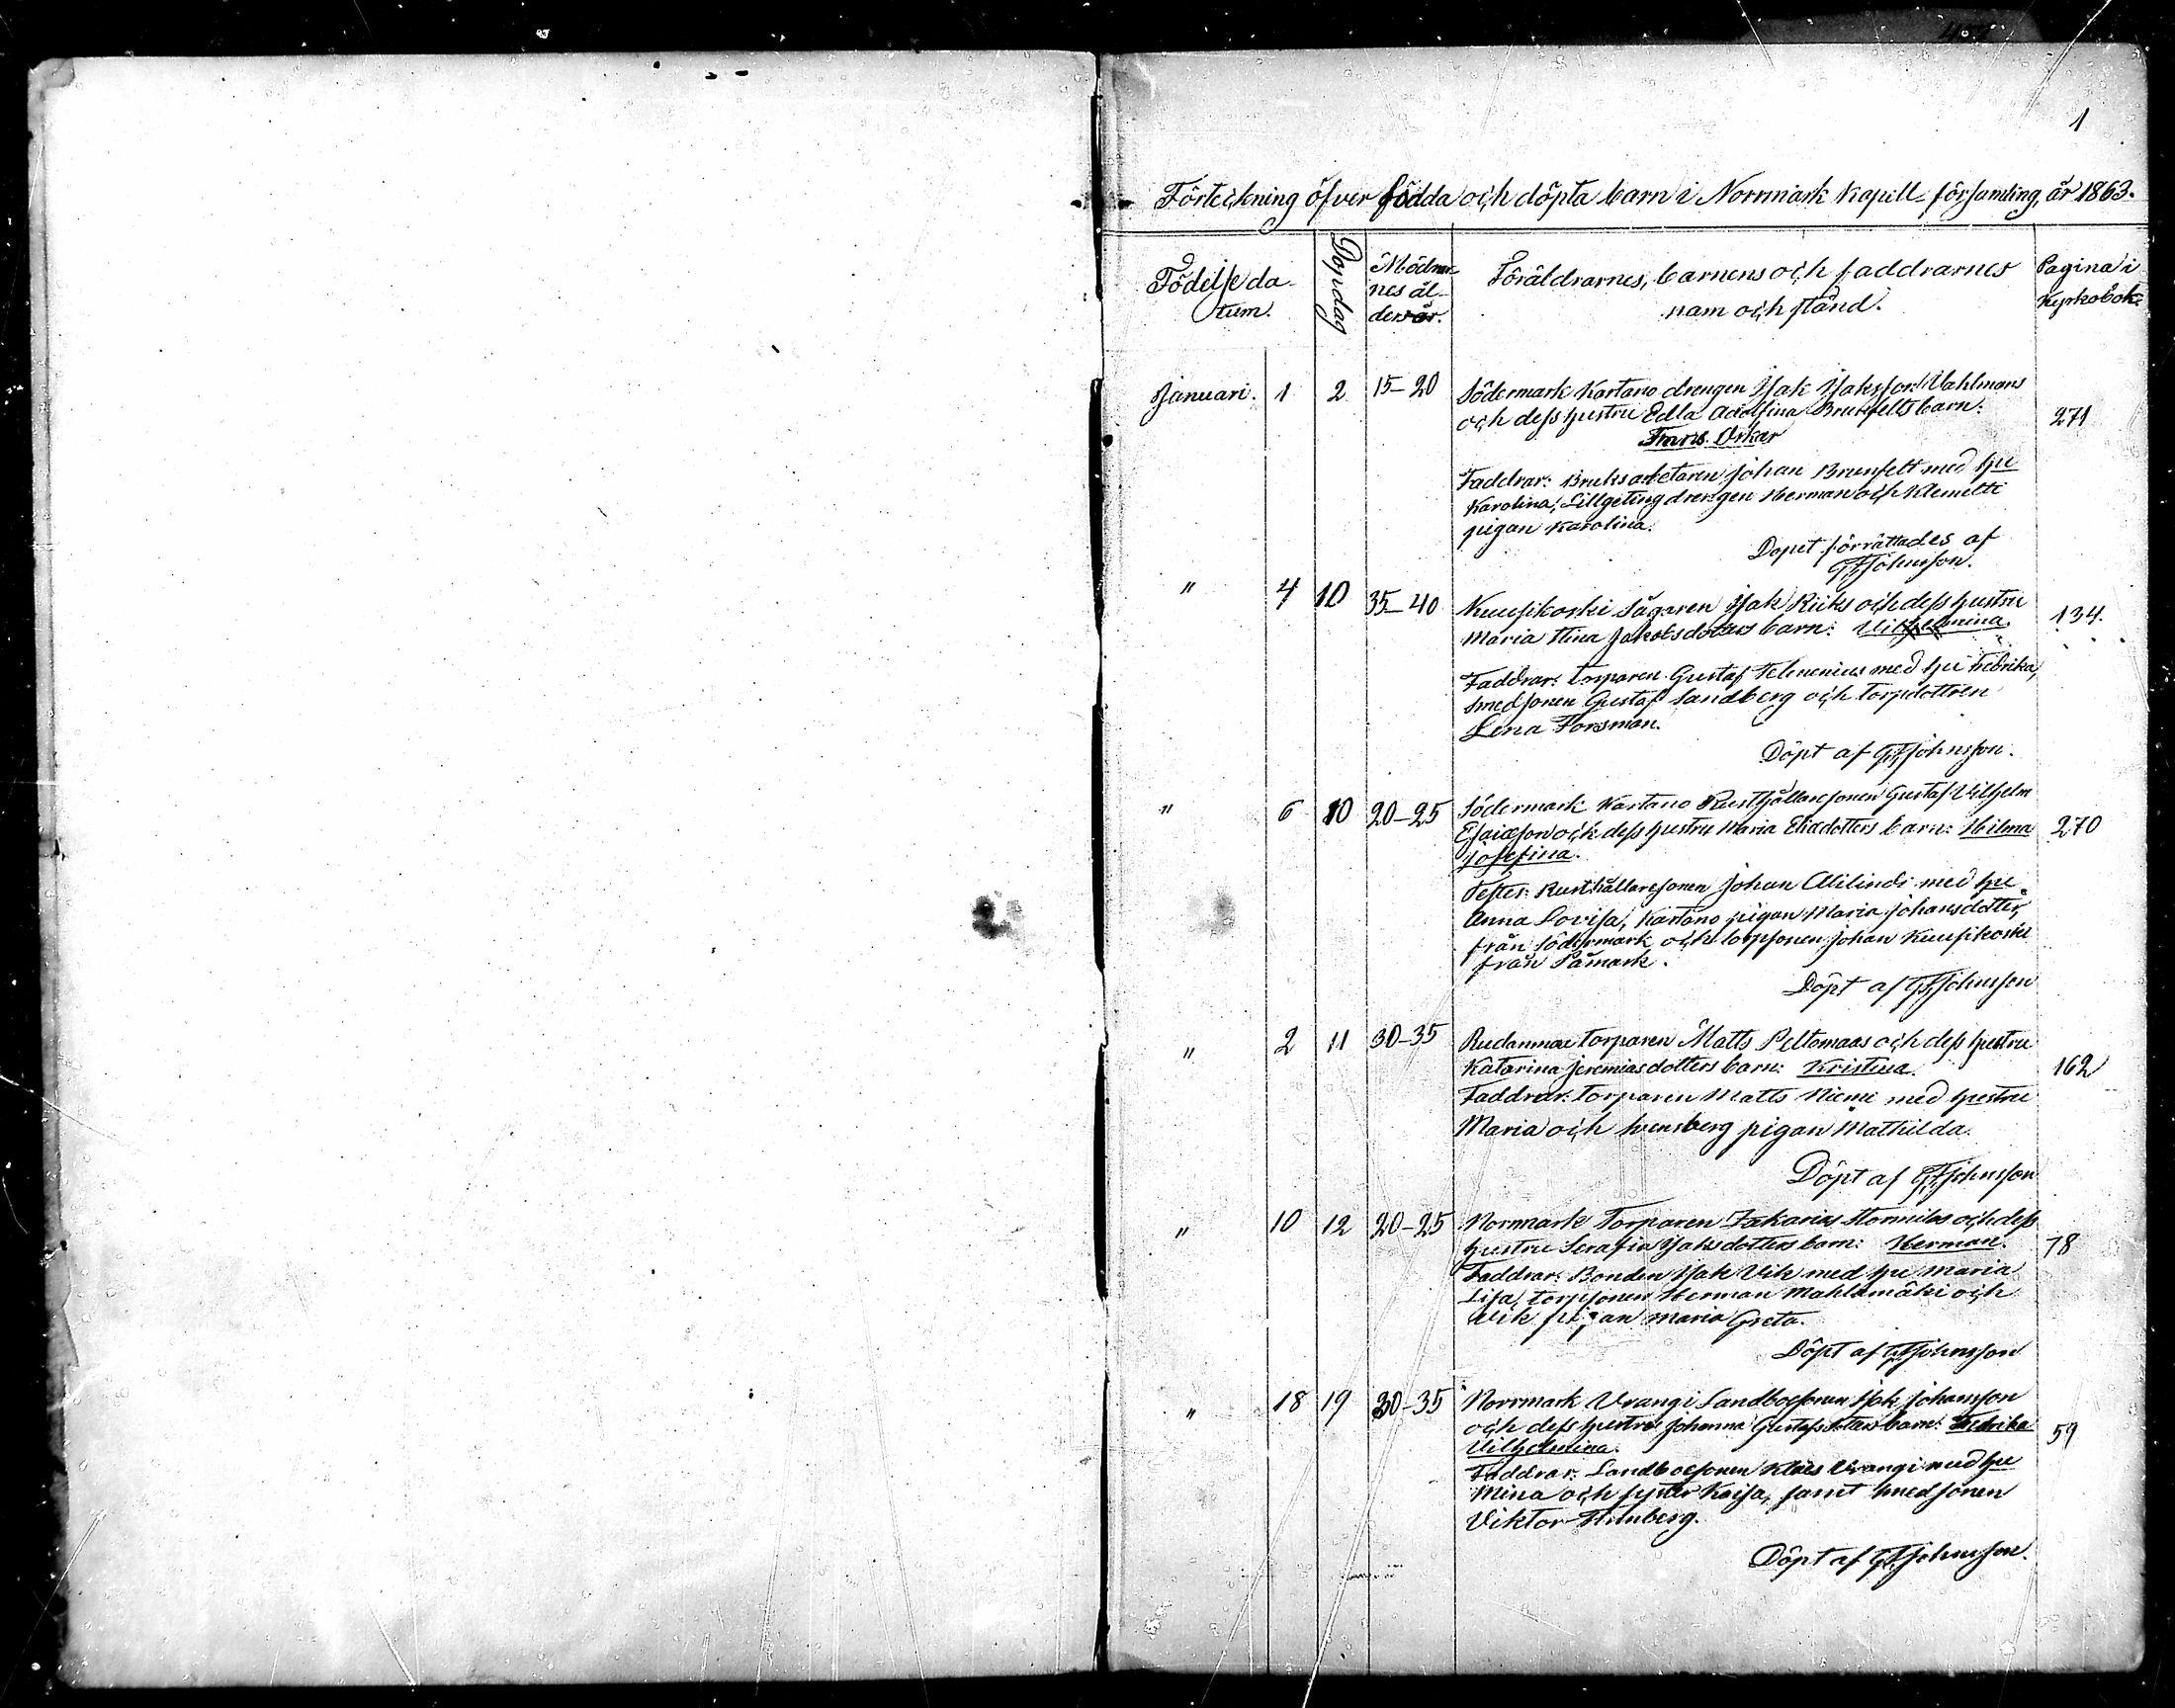 1
Förteckning öfver födda och döpta barn i Norrmark Kapell församling, år 1863.
Födelse da-
tum.
Dopdag
Mödrar-
nes ål-
der år.
Föräldrarnes, barnens och faddrarnes
nam och stånd.
Pagina i
Kyrkobok.
Januari. 1 2 15-20 Södermark Kartano drengen Isak Isaksson Vahlmans
och dess hustru Edla Adolfina Brunfelts barn: 271
Frans Oskar
Faddrar: Bruksarbetaren Johan Brunfelt med hu
Karolina, Lillgeting drengen Herman och Klemetti
pigan Karolina.
Dopet förrättades af
G F Johnsson.
" 4 10 35-40 Kuusikoski Sågaren Isak Riks och dess hustru 134.
Maria Stina Jakobsdotters barn: Vilhelmina.
Faddrar: torparen Gustaf med hu Fredrika,
smedsonen Gustaf Sandberg och torpdottren
Lena Forsman.
Döpt af G F Johnsson.
" 6 10 20-25 Södermark Kartano Rusthållaresonen Gustaf Vilhelm
Esaiasson och dess hustru Maria Eliædotters barn: Hilma 270
Josefina.
Testes: Rusthållaresonen Johan Alilindi med hu
Anna Lovisa, Kartano pigan Maria Johansdotter,
från Södermark och torpsonen Johan Kuusikoski
från Påmark.
Döpt af G F Johnsson
" 2 11 30-35 Rudanmaa torparen Matts Peltomaas och dess hustru
Katarina Jeremiasdotters barn: Kristina. 162
Faddrar: torparen Matts Niemi med hustru
Maria och Svensberg pigan Mathilda.
Döpt af G F Johnsson
" 10 12 20-25 Norrmark Torparen Zakarias och dess
hustru Serafia Isaksdotters barn: Herman. 78
Faddrar: Bonden Isak Vik med hu Maria
Lisa, torpsonen Herman Mahlamäki och
Vik pigan Maria Greta.
Döpt af G F Johnsson
" 18 19 30-35 Norrmark Vrangi Landbosonen Isak Johansson
och dess hustrus Johanna Gustafsdotters barn: Fredrika 59
Vilhelmina.
Faddrar: Landbosonen Klaes Vrangi med hu
Mina och syster Kajsa, samt smedsonen
Viktor
Döpt af G F Johnsson.